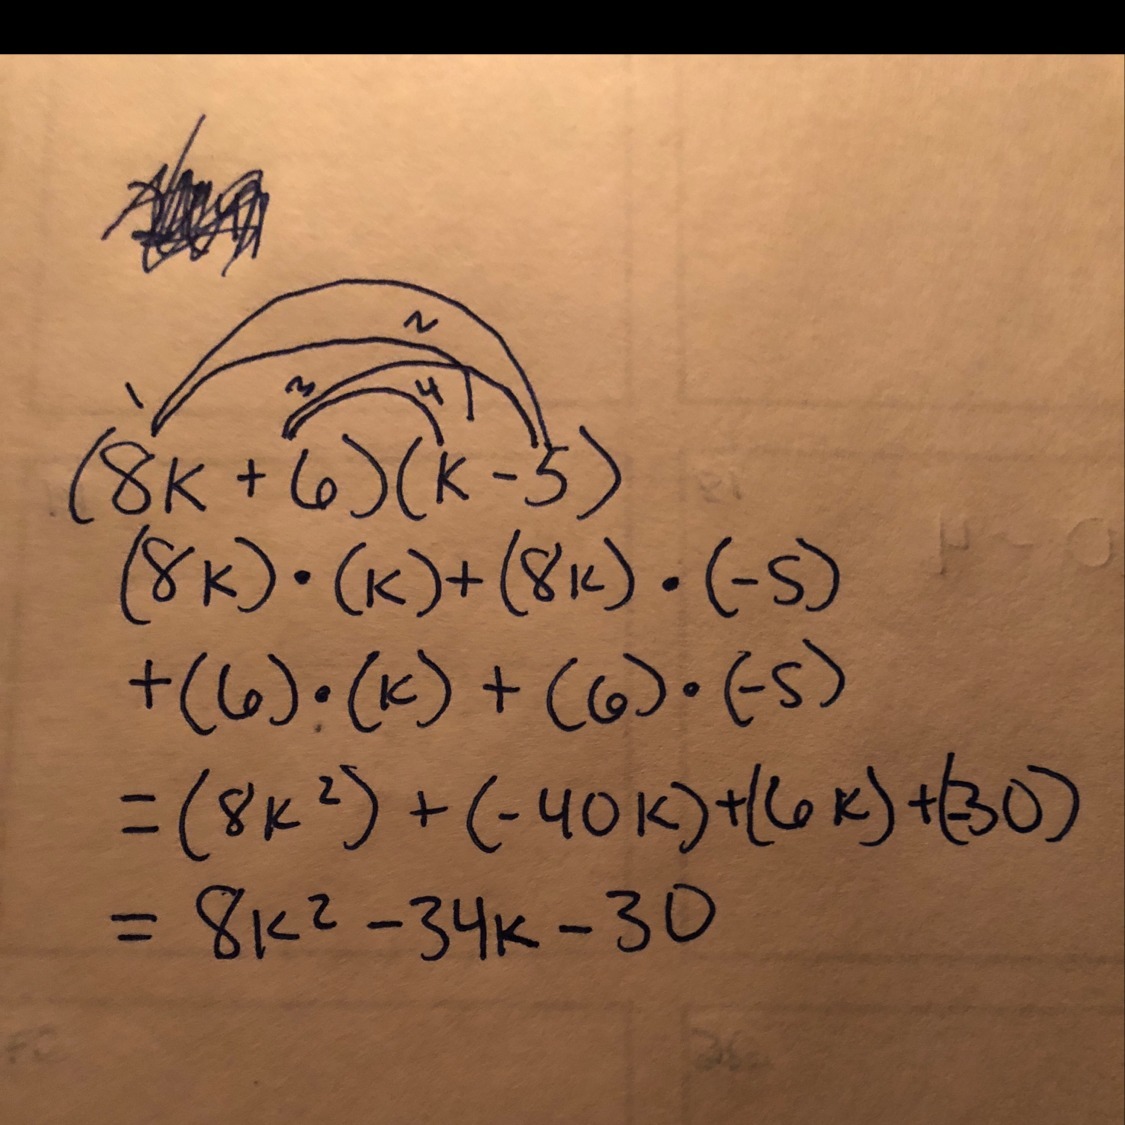 1 2 3 4
(8k + 6)(k - 5)
(8k) • (k) + (8k) • (-5)
+ (6) • (k) + (6) • (-5)
= (8k²) + (-40k) + (6k) + (-30)
= 8k² - 34k - 30